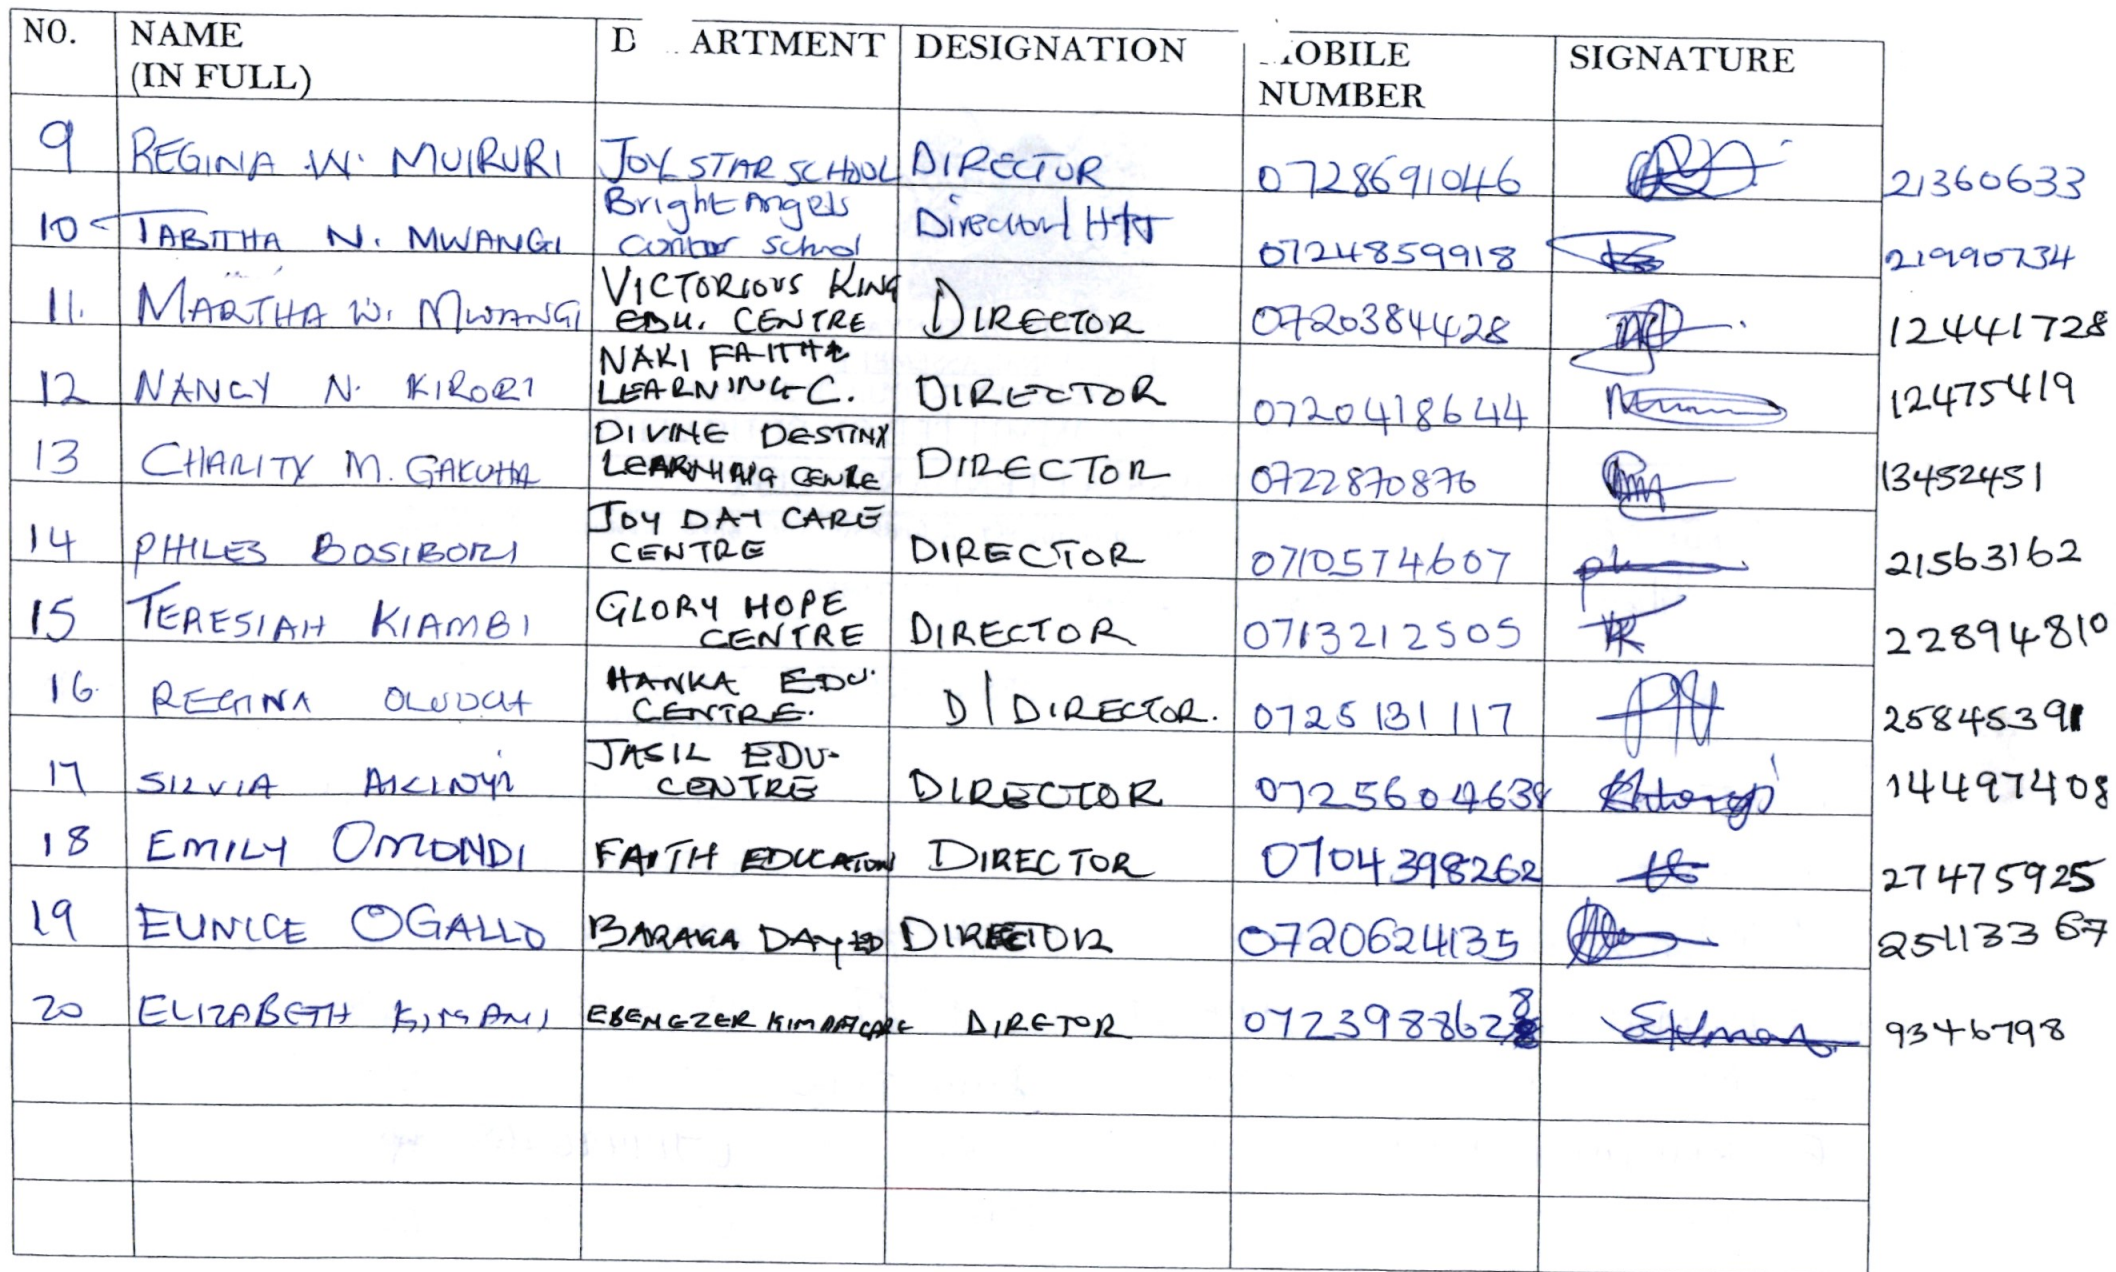 NO. NAME (IN FULL) D ARTMENT DESIGNATION MOBILE NUMBER SIGNATURE
9 REGINA W. MUIRURI JOY STAR SCHOOL DIRECTOR 0728691046 21360633
10 TABITHA N. MWANGI Bright Angels school Director/ 0724859918 21990734
11. MARTHA W. MWANGI VICTORIOUS KING EDU. CENTRE DIRECTOR 0720384428 12441728
12 NANCY N. KIRORI NAKI FAITH LEARNING C. DIRECTOR 0720418644 12475419
13 CHARITY M. GAKUHA DIVINE DESTINY LEARNING CENRE DIRECTOR 0722870876 13452451
14 PHILES BOSIBORI JOY DAY CARE CENTRE DIRECTOR 0710574607 21563162
15 TERESIAH KIAMBI GLORY HOPE CENTRE DIRECTOR 0713212505 22894810
16. REGINA OLUOCH HANKA EDU. CENTRE. D/DIRECTOR. 0725131117 25845391
17 SILVIA AKINYI JASIL EDU. CENTRE DIRECTOR 0725604638 14497408
18 EMILY OMONDI FAITH EDUCATION DIRECTOR 0704398262 27475925
19 EUNICE OGALLO BARAKA DAY ED DIRECTOR 0720624135 25113367
20 ELIZABETH KIMANI EBENEZER DIRETOR 0723988628 9346798